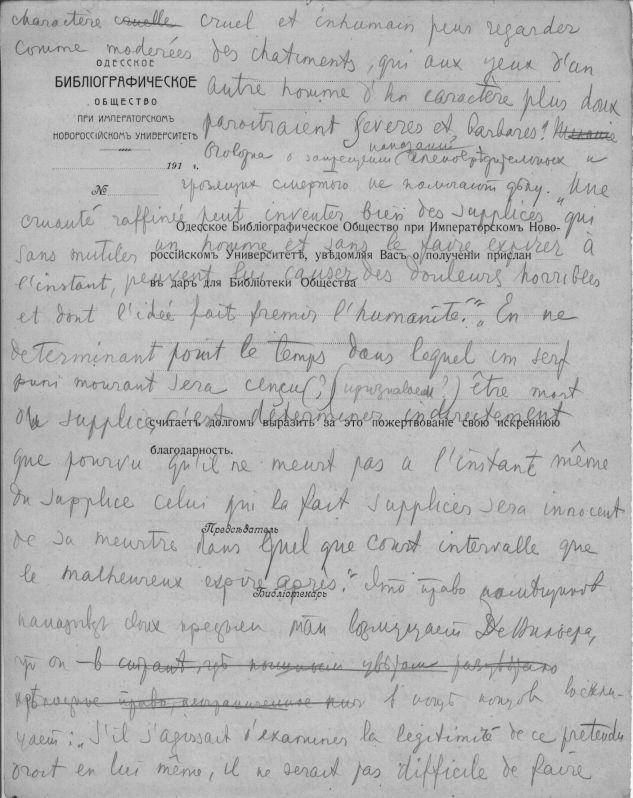 charactère cruelle cruel et inhumain peus regarder
comme moderées des chatiments, qui aux yeux d'un
ОДЕССКОЕ
БИБЛІОГРАФИЧЕСКОЕ
ОБЩЕСТВО
ПРИ ИМПЕРАТОРСКОМЪ
НОВОРОССІЙСКОМЪ УНИВЕРСИТЕТѢ
191 г.
№
autre homme d'un caractère plus doux
paroitraient severes et barbares?
Оговорка о запрещении наказаний членовредительных и
грозящих смертью не помогает делу. "Une
cruauté raffinée peut inventer bien des supplices qui
Одесское Библіографическое Общество при Императорскомъ Ново-
sans mutiler un homme et sans le faire expirer à
россійскомъ Университетѣ, увѣдомляя Васъ о полученіи прислан
l'instant, peuvent lui causer des douleurs horribles
въ даръ для Библіотеки Общества
et dont l'idée fait fremir l'humanité." "En ne
determinant point le temps dans lequel un serf
puni mourant sera cençu (?) (признаваем ?) être mort
du supplice, c'est determiner indirectement
считаетъ долгомъ выразить за это пожертвованіе свою искреннюю
благодарность.
que pourvu qu'il ne meurt pas a l'instant même
du supplice celui qui la fait supplices sera innocent
Предсѣдатель
de sa meurtre dans quel que court intervalle que
le malheureux expire après." Это право помѣщиков
Библіотекарь
наказывать своих крестьян так возмущает Де Вильера,
что он в концѣ концов воскли-
цает: "S'il s'agissait d'examiner la legitimité de ce pretendu
droit en lui même, il ne serait pas difficile de faire